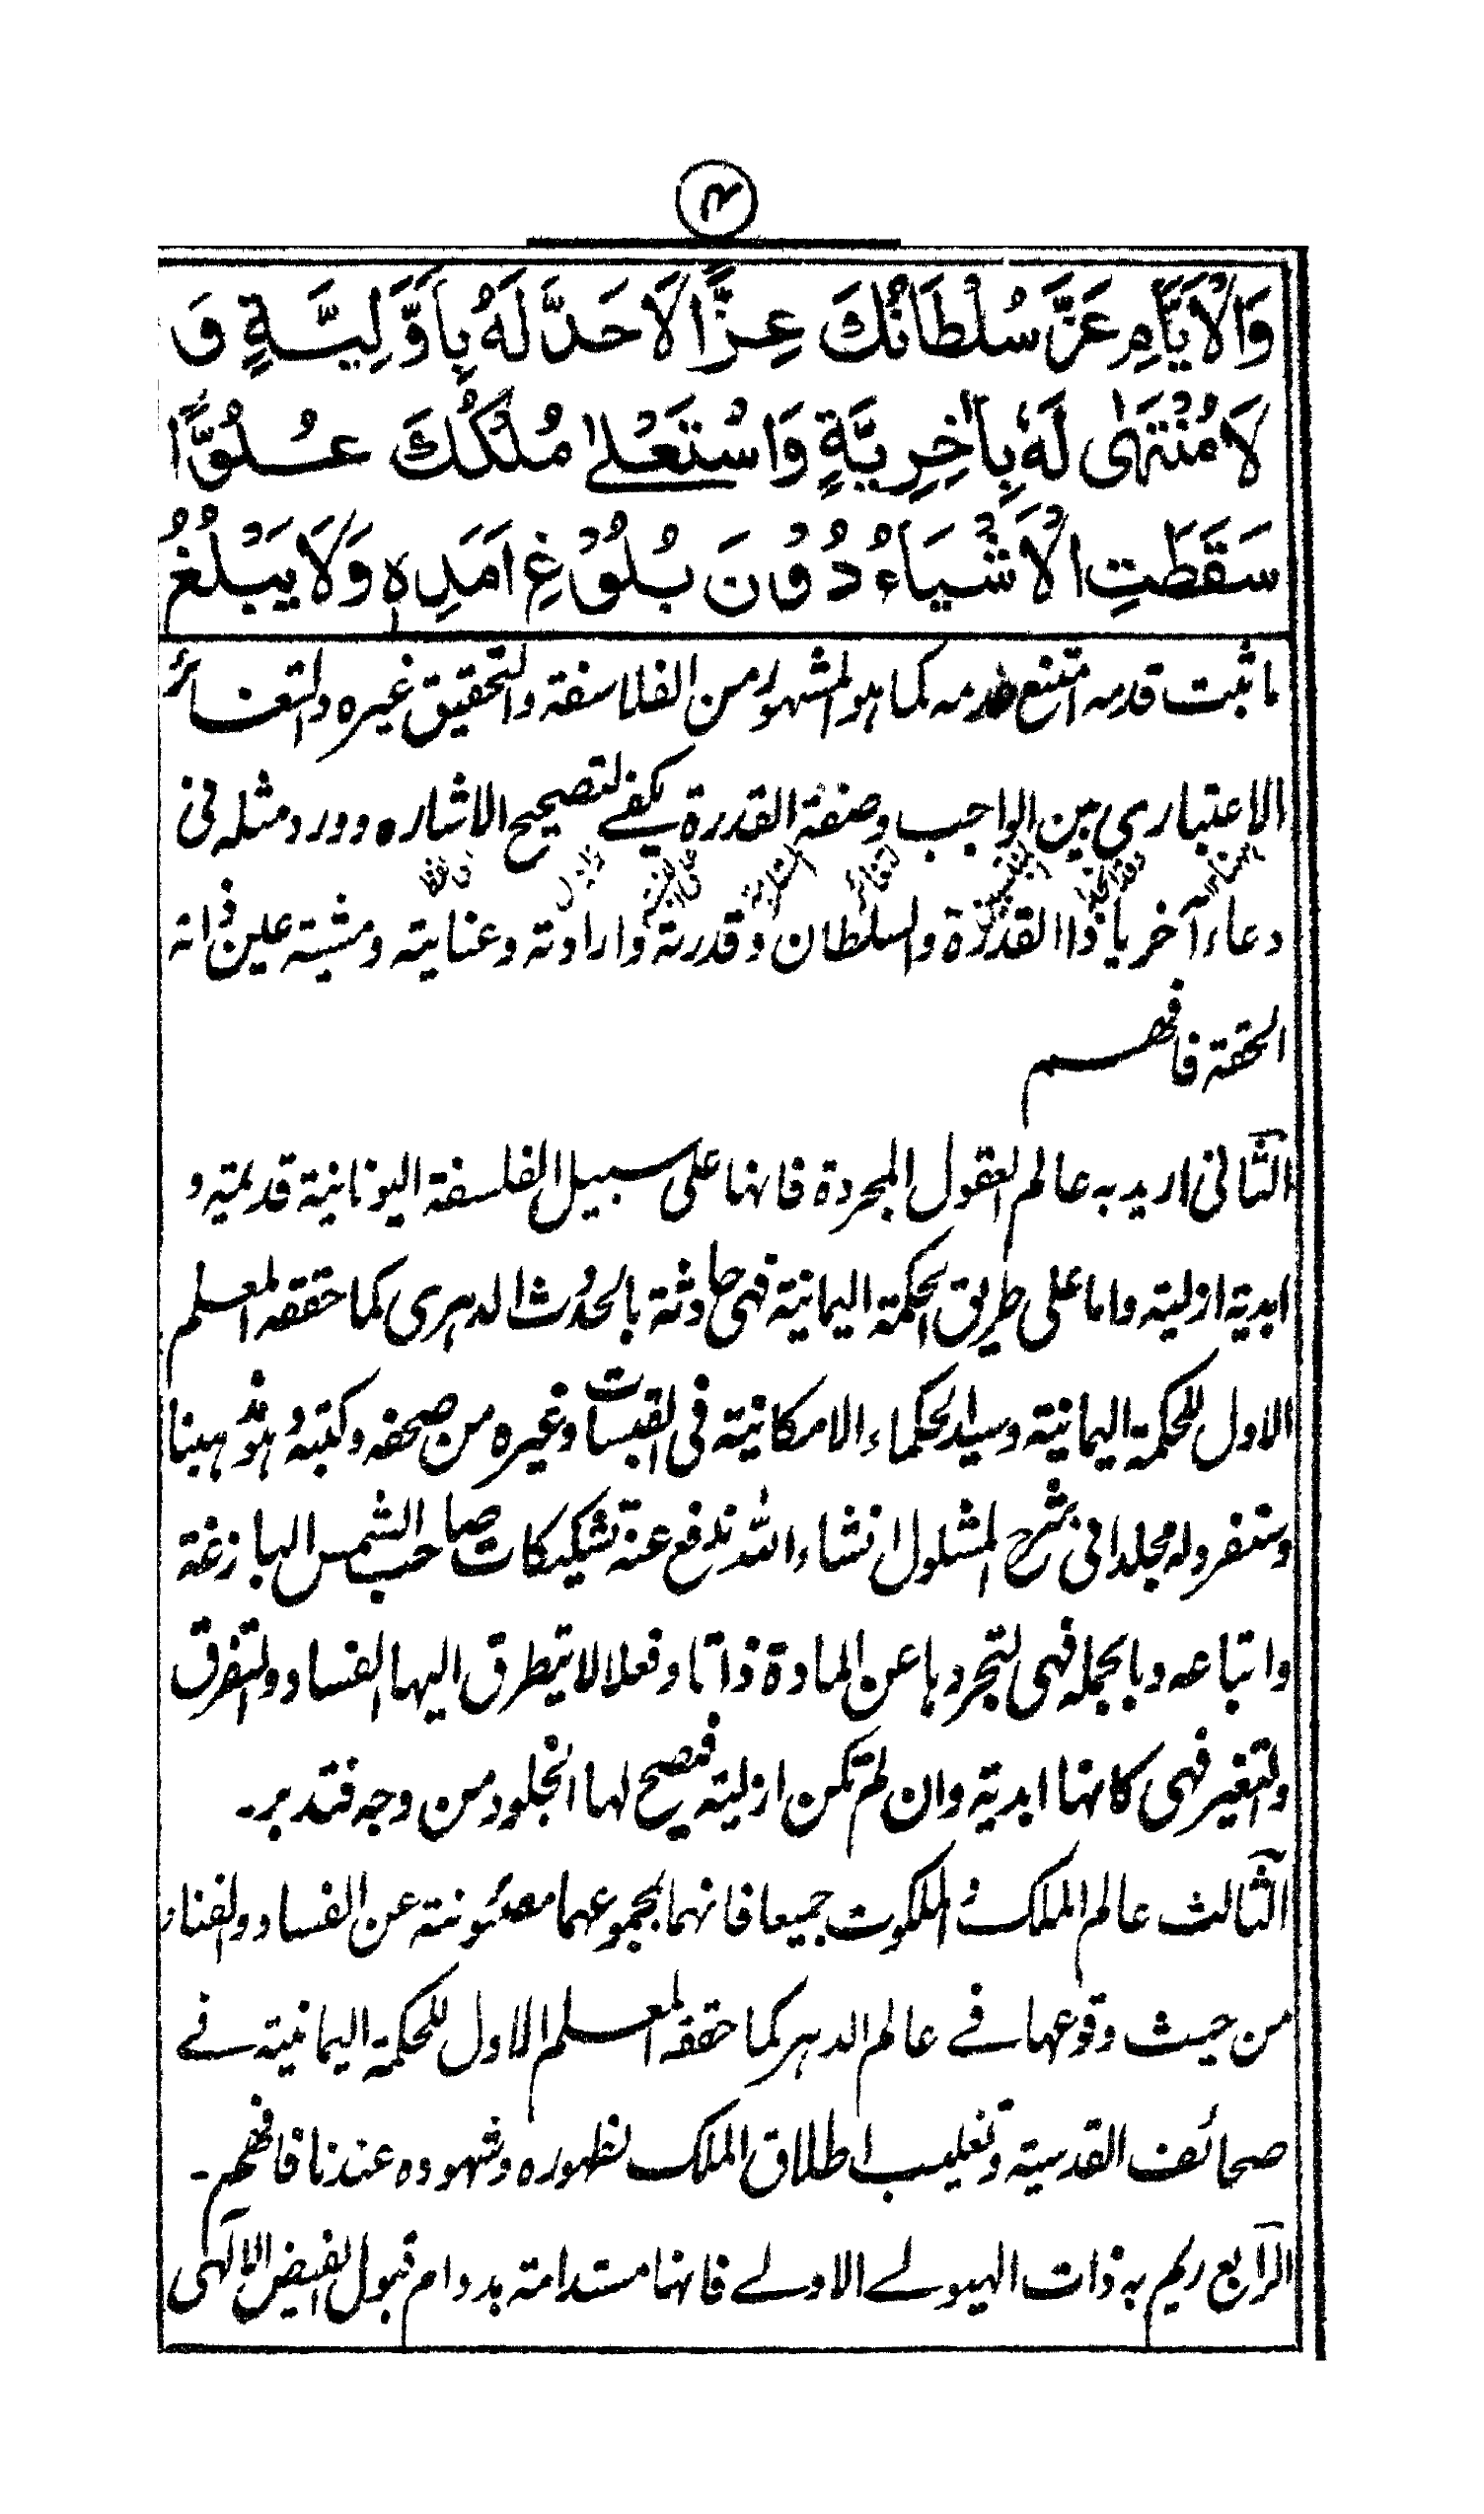 ۴
وَالْاَيَّامِ عَزَّ سُلْطَانُكَ عِزًّا لَا حَدَّ لَهُ بِاَوَّلِيَّةٍ وَ
لَا مُنْتَهٰى لَهٗ بِاٰخِرِيَّةٍ وَاسْتَعْلٰى مُلْكُكَ عُلُوًّا
سَقَطَتِ الْاَشْيَاءُ دُوْنَ بُلُوْغِ اَمَدِهٖ وَلَا يَبْلُغُ
ما ثبت قدمه امتنع عدمه كما هو المشهور من الفلاسفة والتحقيق غيره والتغائر
الاعتباري بين الواجب وصفة القدرة يكفے لتصحيح الاشاره وورد مثله في
دعاء آخر يا ذا القدرة والسلطان وقدرته وارادته وعنايته ومشيته عين ذاته
الحقة فافهم
الثاني اريد به عالم العقول المجردة فانها على سبيل الفلسفة اليونانية قديمة و
ابدية ازلية واما على طريق الحكمة اليمانية فهي حادثة بالحدوث الدهري كما حققه المعلم
الاول للحكمة اليمانية وسيد الحكماء الامكانية في القبسات وغيره من صحفه وكتبه
وسنفرد له مجلدا في شرح المشلول انشاء الله ندفع عنه تشكيكات صاحب الشمس البازغة
واتباعه وبالجمله فهي لتجردها عن المادة ذاتا وفعلا لا يتطرق اليها الفساد والتفرق
والتغير فهي كانها ابدية وان لم تكن ازلية فيصح لها الخلود من وجه فتدبر۔
الثالث عالم الملك والملكوت جميعا فانهما بمجموعهما مصئونة عن الفساد والفناء
من حيث وقوعها فے عالم الدهر كما حققه المعلم الاول للحكمة اليمانية فے
صحائف القدسية وتغليب اطلاق الملك لظهوره وشهوده عندنا فافهم۔
الرابع ريم به ذات الهيولے الاولے فانها مستدامة بدوام قبول الفيض الالهي